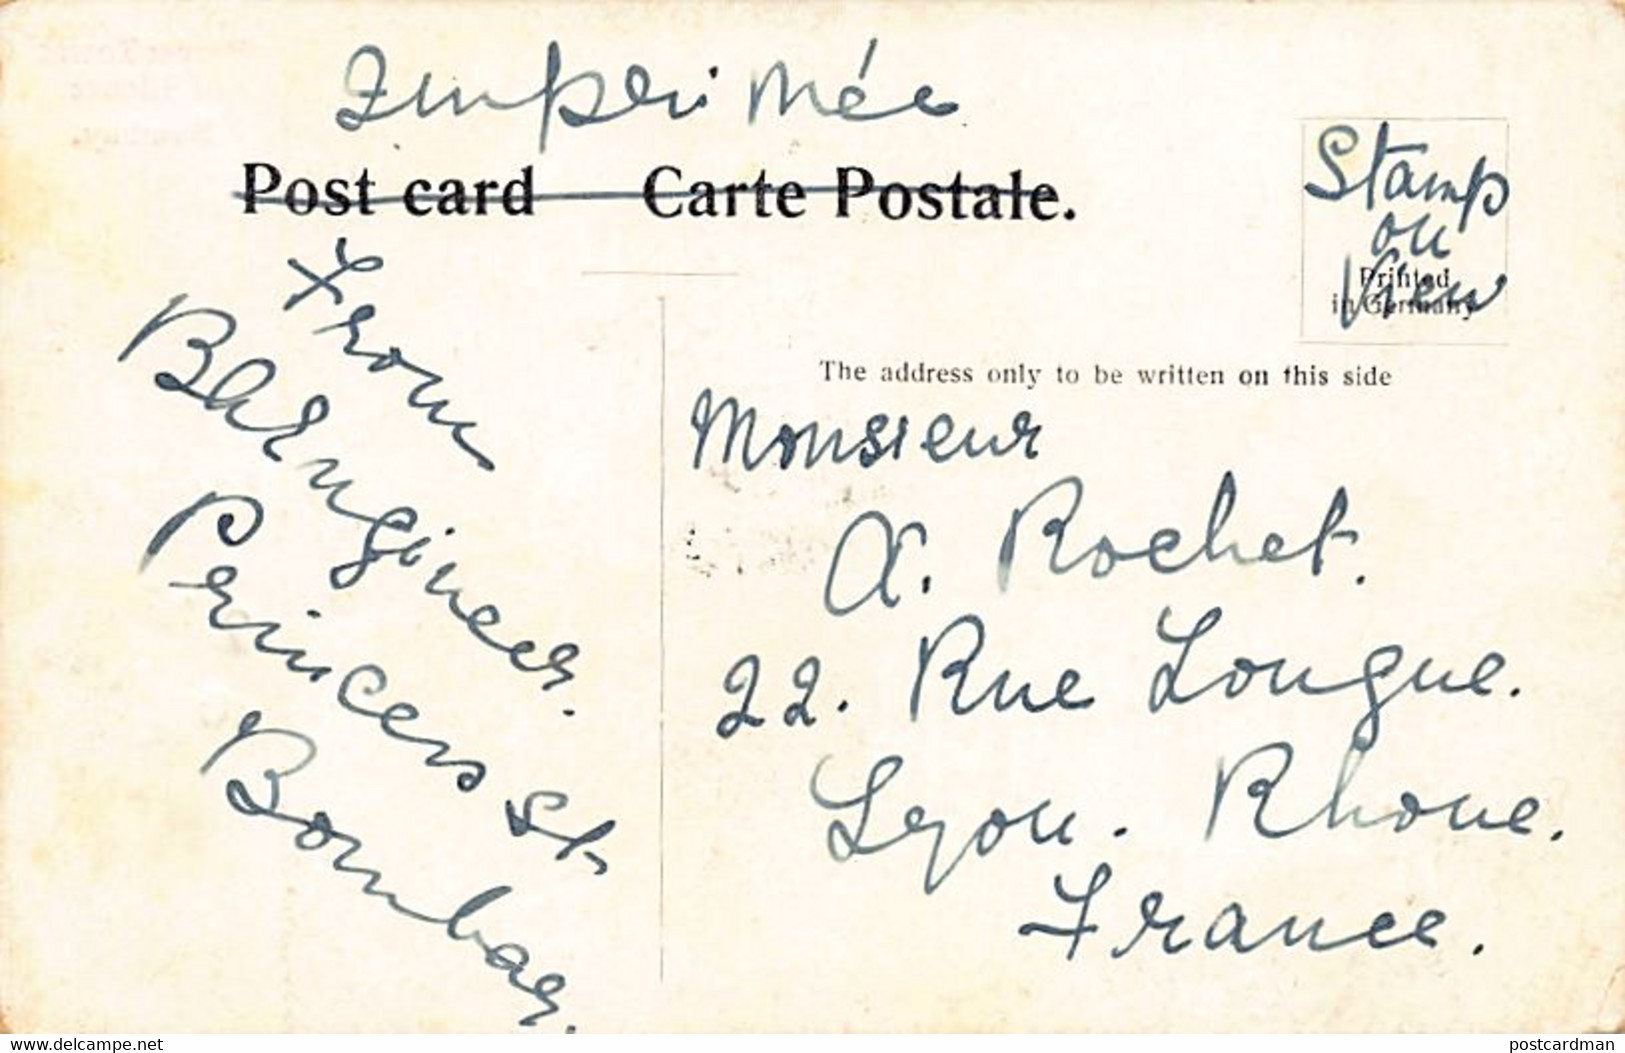 Imprimée
Post card Carte Postale.
Stamp
on
View
Printed
in Germany
The address only to be written on this side
From
Princess St
Bombay.
Monsieur
A. Rochet.
22. Rue Longue.
Lyon. Rhone.
France.
www.delcampe.net
postcardman